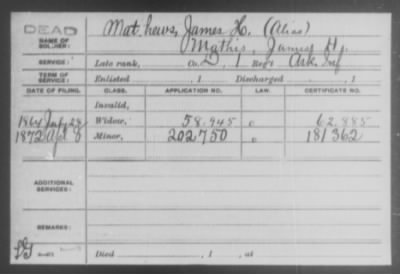 DEAD
NAME OF SOLDIER: Mathews, James H. (Alias)
Mathis, James H.
SERVICE: Late rank, Co. D, 1 Reg't Ark Inf
TERM OF SERVICE: Enlisted , 1 Discharged , 1
DATE OF FILING. CLASS. APPLICATION NO. LAW. CERTIFICATE NO.
Invalid,
1864 July 28 Widow, 58.945 0 62.885
1872 Apl 8 Minor, 202750 0 181362
ADDITIONAL SERVICES:
REMARKS:
Died , 1 , at